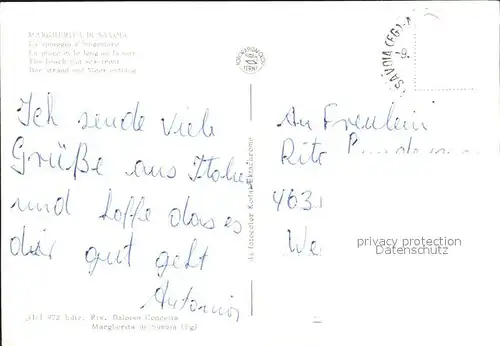 MARGHERITA DI SAVOIA
La spiaggia e lungomare
La plage et le long de la mer
The beach and sea-front
Der Strand und Meer entlang
Ich sende viele
Grüße aus Italien
und hoffe das es
dir gut geht
Antonio
472 Ediz. Ris. Daloiso Concetta
Margherita di Savoia (Fg)
SAVOIA (FG)
An Freulein
Rita
463
We
privacy protection
Datenschutz